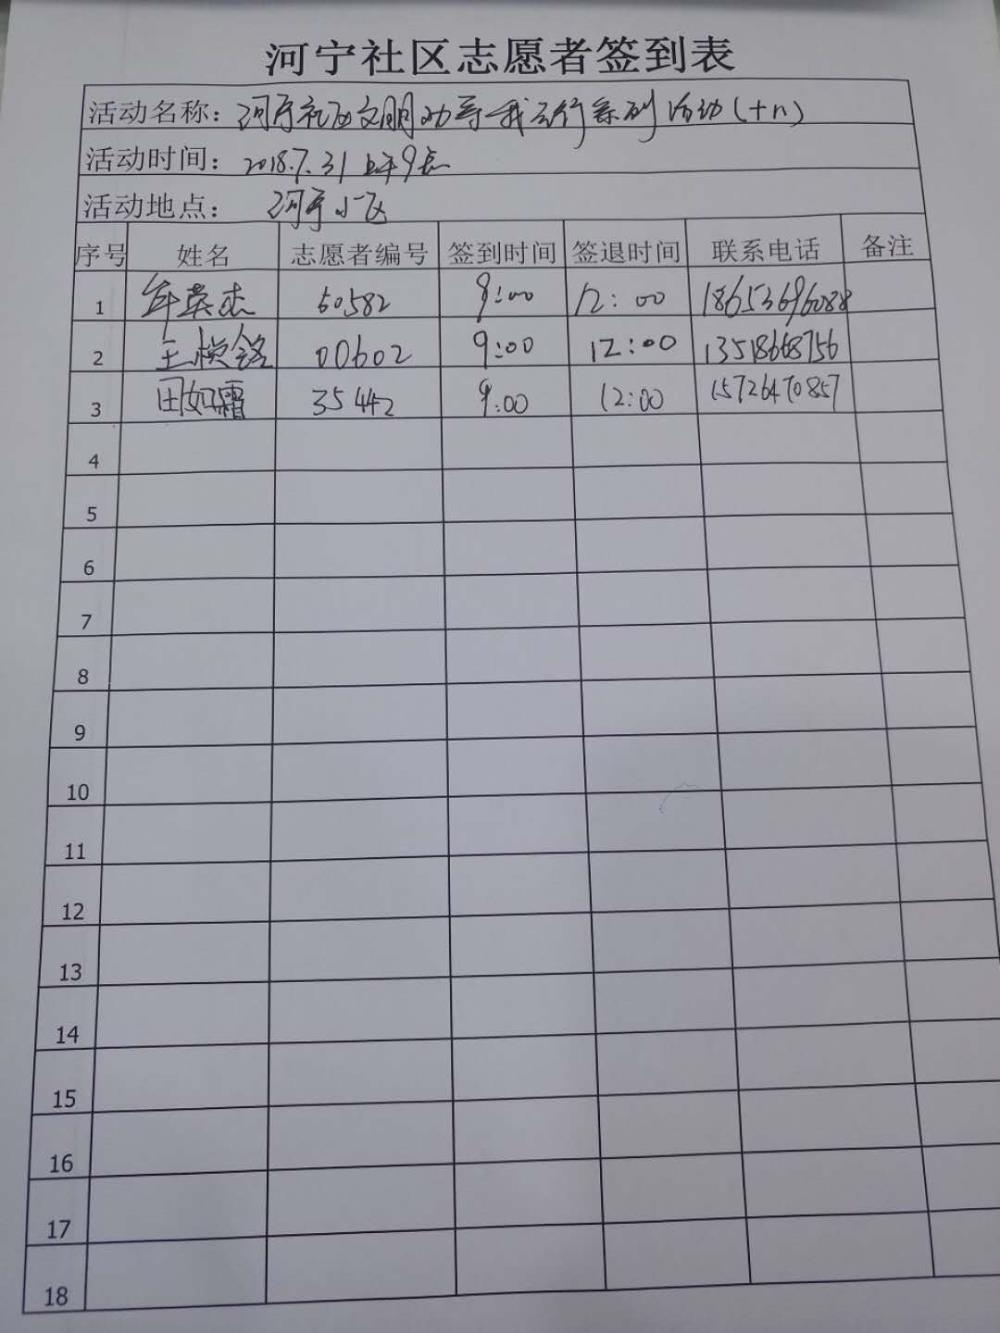 河宁社区志愿者签到表
活动名称：河宁社区文明劝导我先行系列活动（十八）
活动时间：2018.7.31 上午9点
活动地点：河宁小区
序号 姓名 志愿者编号 签到时间 签退时间 联系电话 备注
1 年英杰 50582 9:00 12:00 18653696088
2 王桢铭 00602 9:00 12:00 13518668756
3 田如霜 35442 9:00 12:00 15726470857
4
5
6
7
8
9
10
11
12
13
14
15
16
17
18